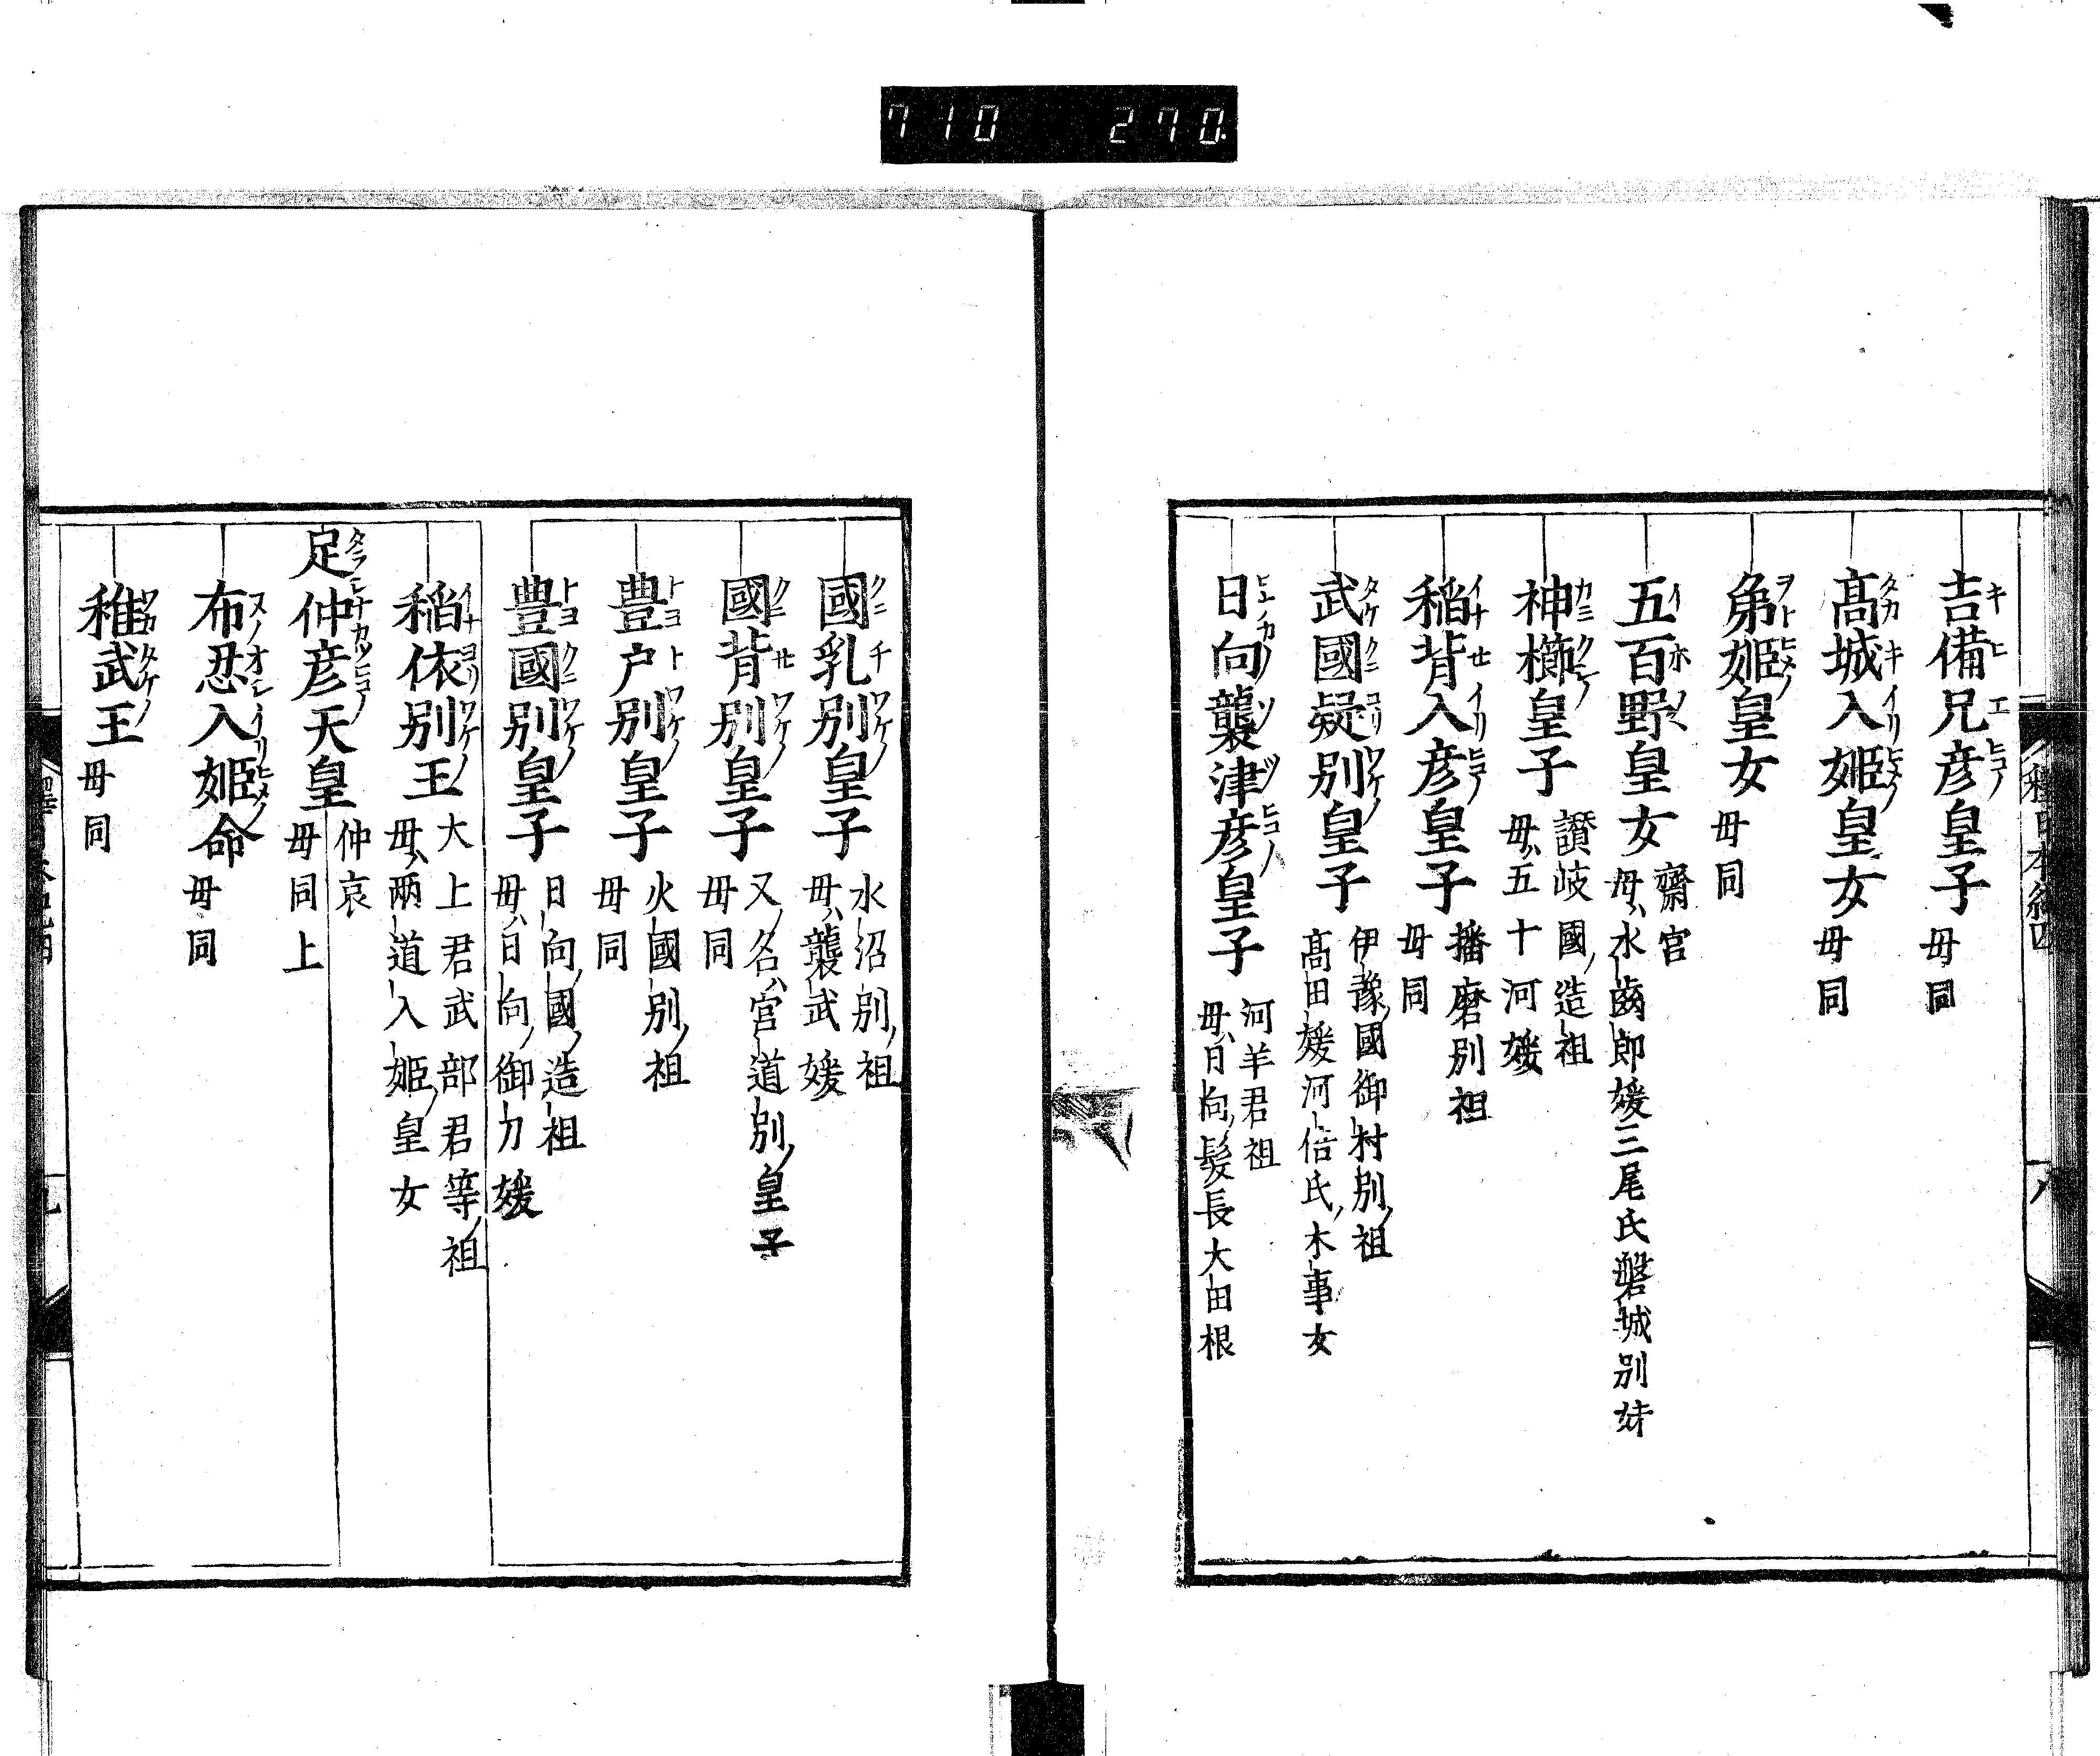 710 270
吉備兄彦皇子 毋同
高城入姫皇女 毋同
弟姫皇女 毋同
五百野皇女 齋官
毋ハ水齒郎媛三尾氏磐城別妹
神櫛皇子 讃岐國ノ造祖
毋ハ五十河媛
稲背入彦皇子 播磨別祖
毋同
武國凝別皇子 伊豫國御村別ノ祖
高田媛河倍氏ノ木事女
日向襲津彦皇子 河羊君祖
毋ハ日向ノ髪長大田根
國乳別皇子 水沼別ノ祖
毋ハ襲武媛
國背別皇子 又ノ名ハ官道別ノ皇子
毋同
豊戸別皇子 火國別ノ祖
毋同
豊國別皇子 日向ノ國ノ造祖
毋ハ日向ノ御刀媛
稲依別王 大上君武部君等ノ祖
毋ハ兩道入姫ノ皇女
足仲彦天皇 仲哀
毋同上
布忍入姫命 毋同
稚武王 毋同